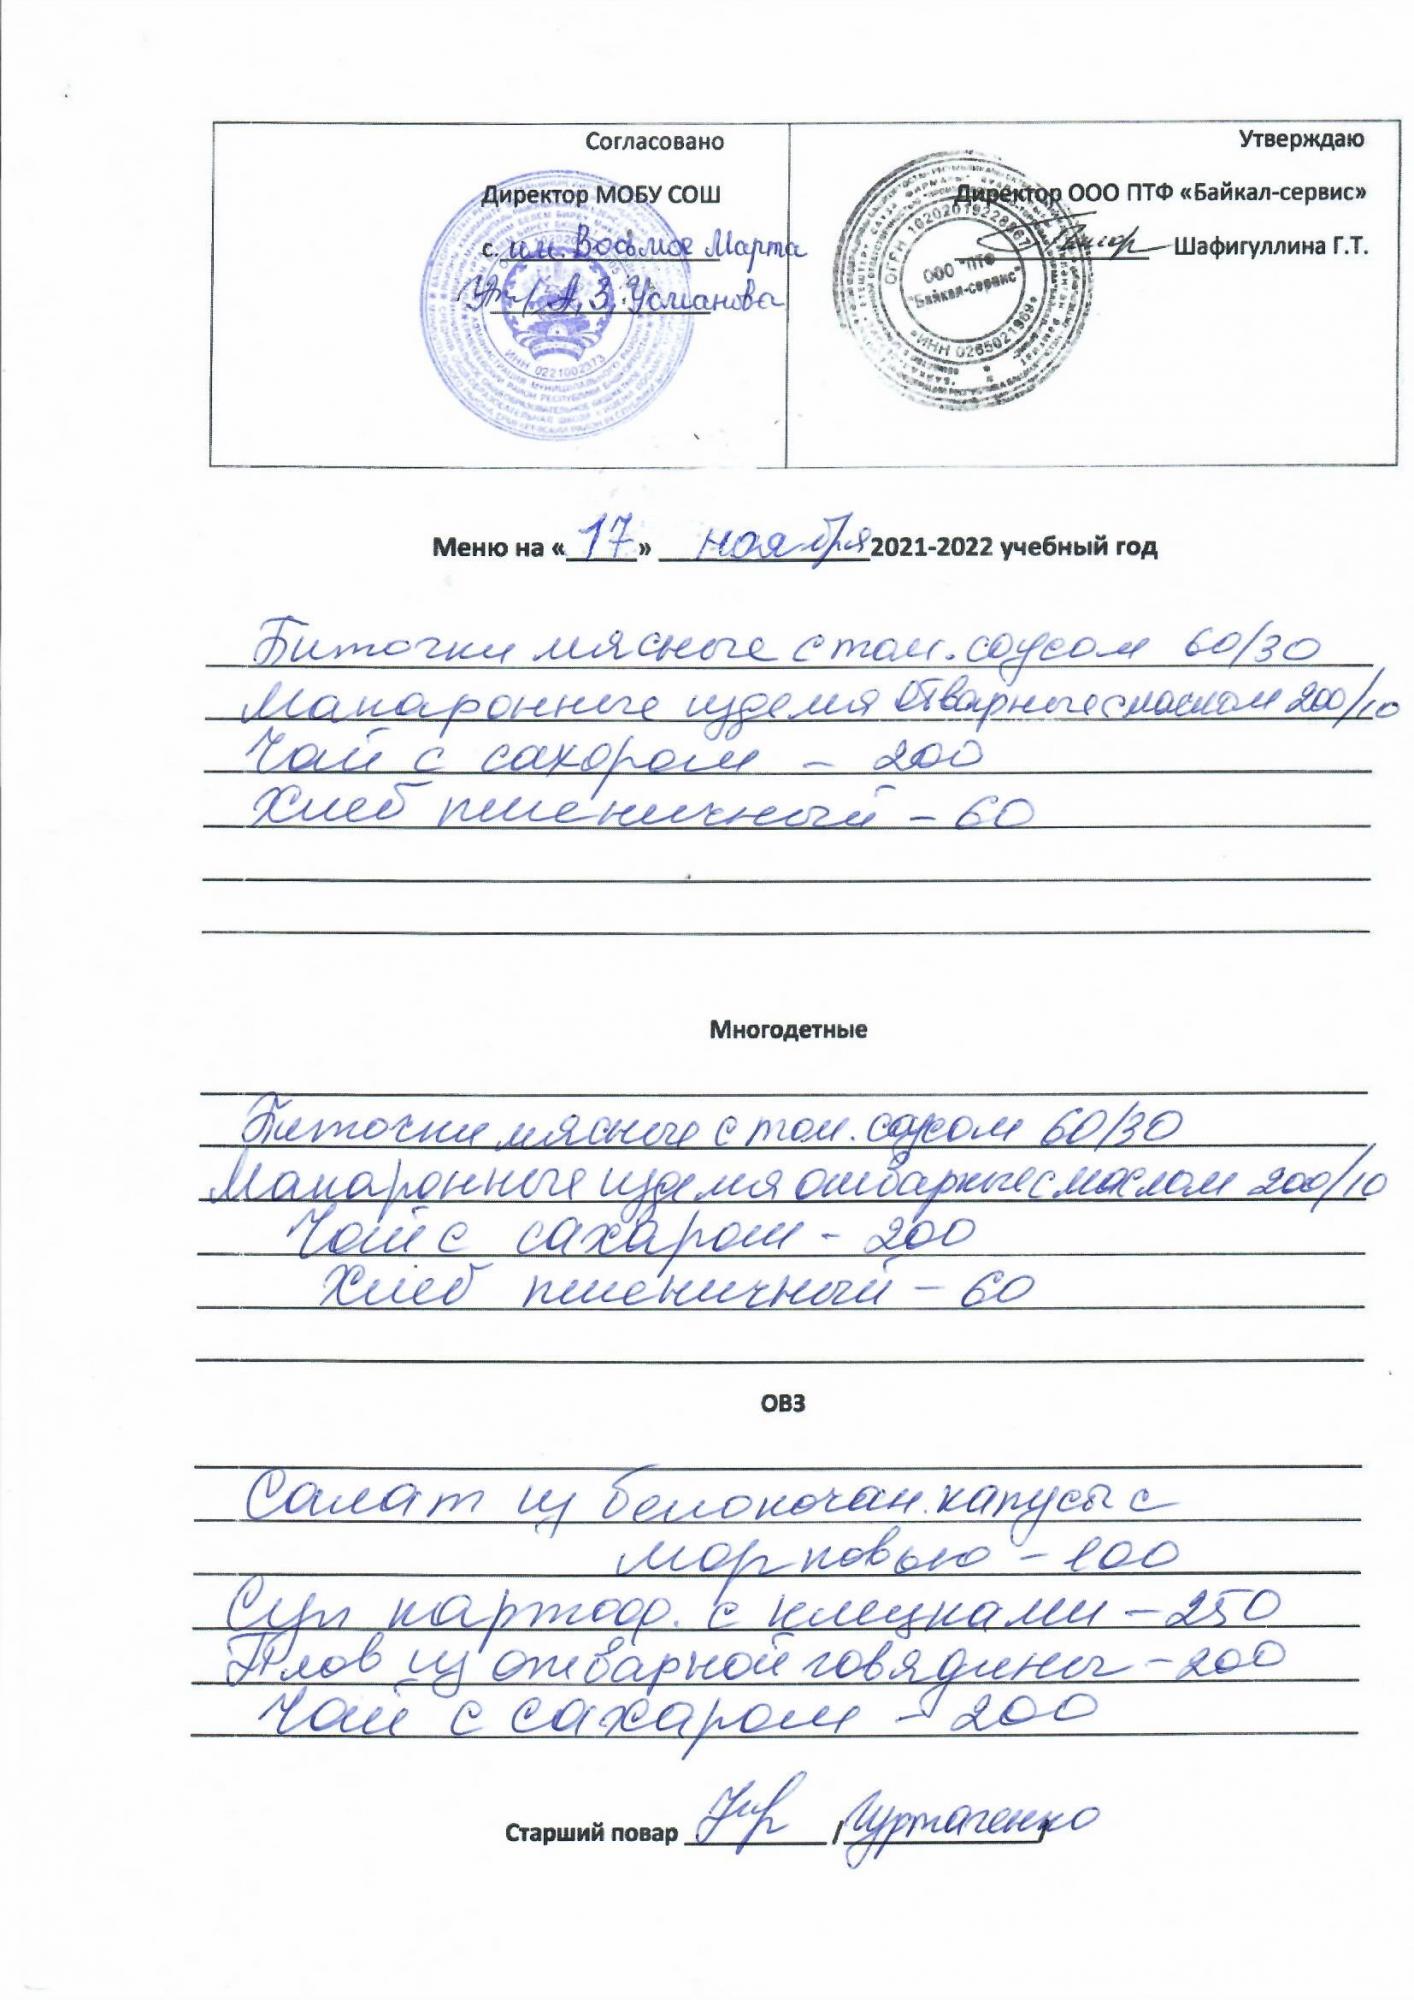 Согласовано
Директор МОБУ СОШ
с. им. Восьмое Марта
А.З. Усманова
ИНН 0221002373
Утверждаю
Директор ООО ПТФ «Байкал-сервис»
Шафигуллина Г.Т.
ООО "ПТФ
"Байкал-сервис"
ИНН 0265021969
Меню на «17» ноября 2021-2022 учебный год
Биточки мясные с том. соусом 60/30
Макаронные изделия отварные с маслом 200/10
Чай с сахором - 200
Хлеб пшеничный - 60
Многодетные
Биточки мясные с том. соусом 60/30
Макаронные изделия отварные с маслом 200/10
Чай с сахаром - 200
Хлеб пшеничный - 60
ОВЗ
Салат из белокочан. капусты с
морковью - 100
Суп картоф. с клецками - 250
Плов из отварной говядины - 200
Чай с сахаром - 200
Старший повар / /